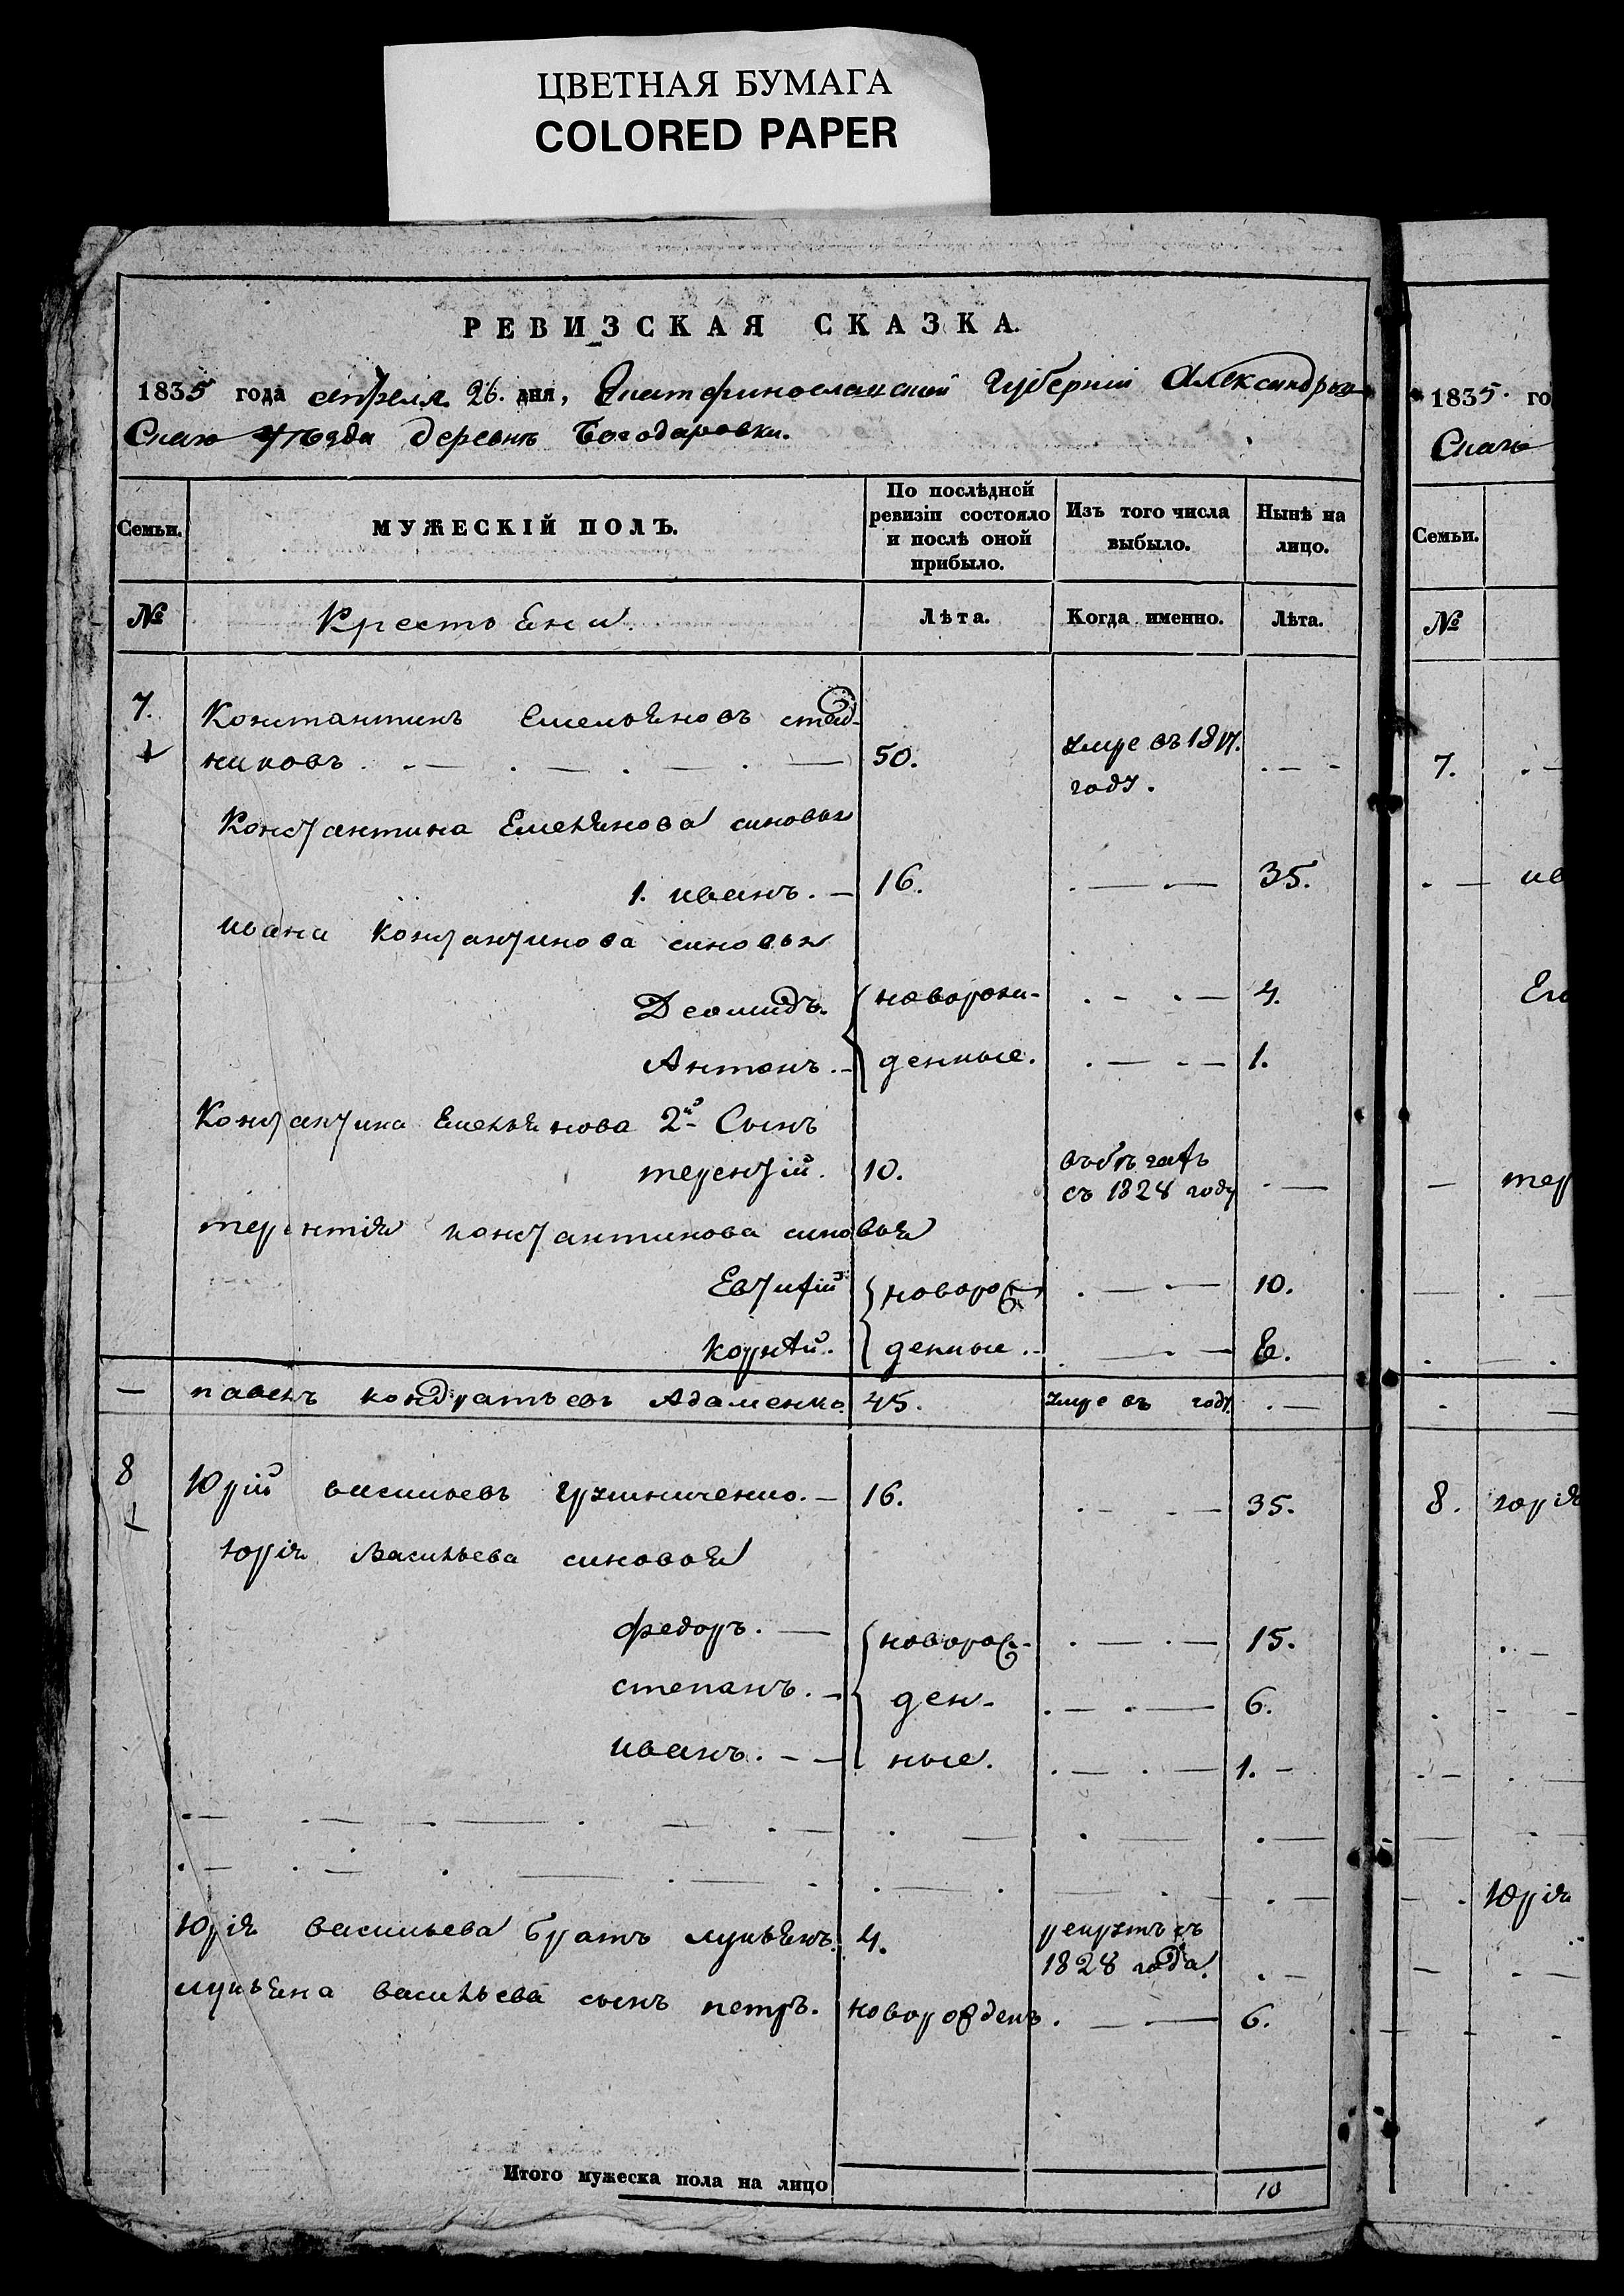 ЦВЕТНАЯ БУМАГА
COLORED PAPER
РЕВИЗСКАЯ СКАЗКА.
1835 года апреля 26. дня, Екатеринославской Губерніи Александров
Скаго уѣзда деревнѣ Богодаровки.
Семьи. МУЖЕСКІЙ ПОЛЪ. По послѣдней ревизіи состояло и послѣ оной прибыло. Изъ того числа выбыло. Нынѣ на лицо.
№ Крестьяни. Лѣта. Когда именно. Лѣта.
7. Константинъ Емельяновъ
никовъ 50. умре въ 1817. году.
Константина Емельянова синовья
1. иванъ. 16. 35.
ивана Константинова синовья
Деомидъ. новорож- 4.
Антонъ. денные. 1.
Константина Емельянова 2й Сынъ
терентій. 10. въ бѣгахъ съ 1828 году
терентія константинова синовья
Евтифій новорож- 10.
корнѣй. денные.
павелъ кондратьевъ Адаменко. 45. умре въ году.
8 Юрій васильевъ 16. 35.
Юрія Васильева синовья
федоръ. новорож- 15.
степанъ. ден- 6.
иванъ. ные. 1.
Юрія васильева братъ лукьянъ. 4. рекрутъ съ 1828 года.
лукьяна васильева сынъ петръ. новорожденъ. 6.
Итого мужеска пола на лицо 10
1835. го
Скаго
Семьи.
№
7.
ив
тер
8. юрія
Юрія